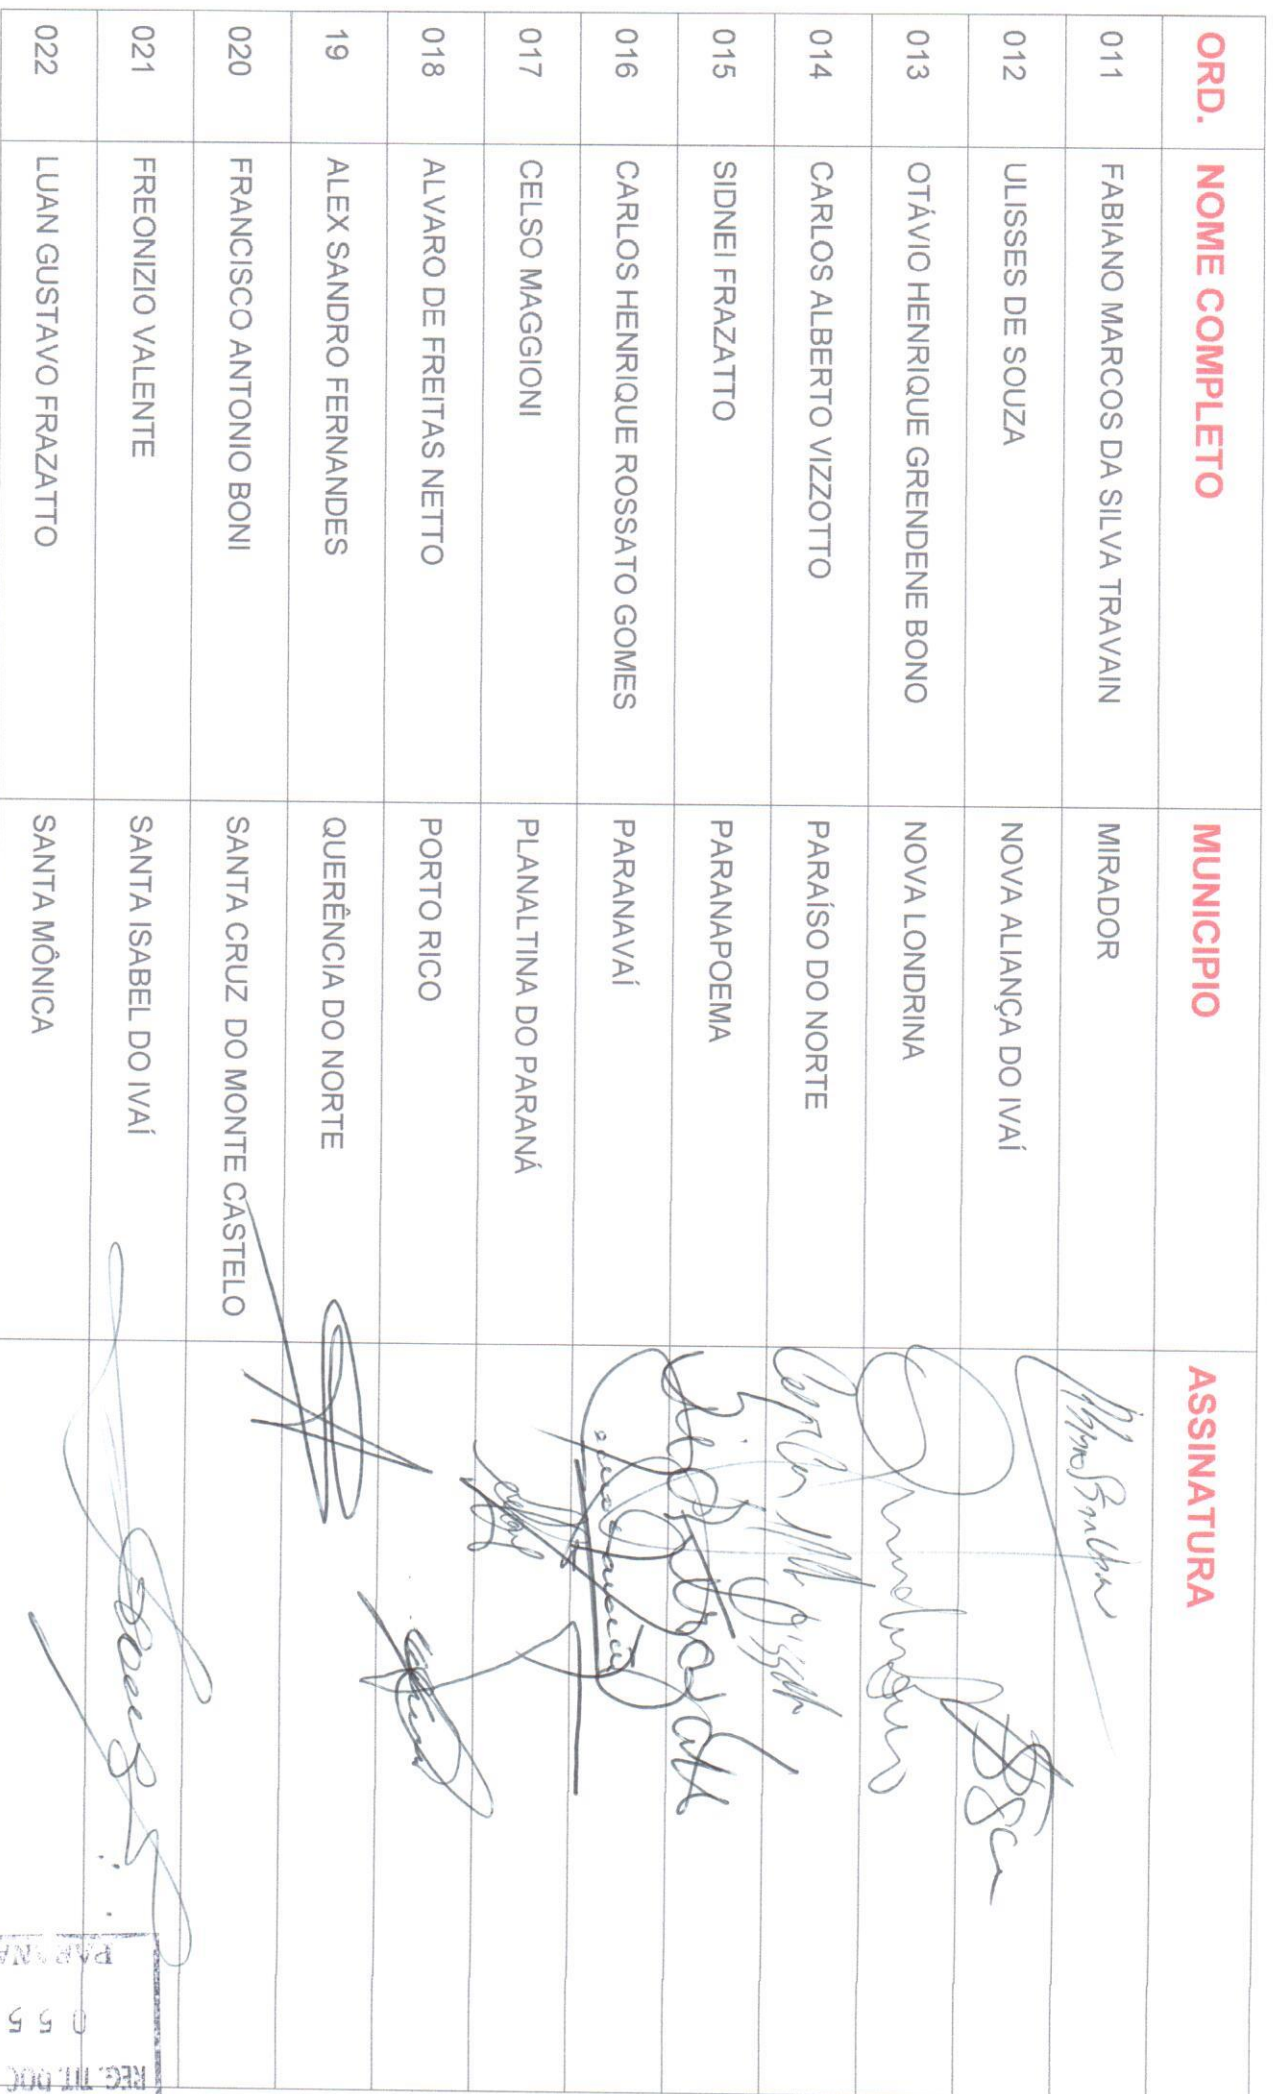 ORD. NOME COMPLETO MUNICIPIO ASSINATURA
011 FABIANO MARCOS DA SILVA TRAVAIN MIRADOR
012 ULISSES DE SOUZA NOVA ALIANÇA DO IVAÍ
013 OTÁVIO HENRIQUE GRENDENE BONO NOVA LONDRINA
014 CARLOS ALBERTO VIZZOTTO PARAÍSO DO NORTE
015 SIDNEI FRAZATTO PARANAPOEMA
016 CARLOS HENRIQUE ROSSATO GOMES PARANAVAÍ
017 CELSO MAGGIONI PLANALTINA DO PARANÁ
018 ALVARO DE FREITAS NETTO PORTO RICO
19 ALEX SANDRO FERNANDES QUERÊNCIA DO NORTE
020 FRANCISCO ANTONIO BONI SANTA CRUZ DO MONTE CASTELO
021 FREONIZIO VALENTE SANTA ISABEL DO IVAÍ
022 LUAN GUSTAVO FRAZATTO SANTA MÔNICA
REG. TIT. DOC
0 5 5